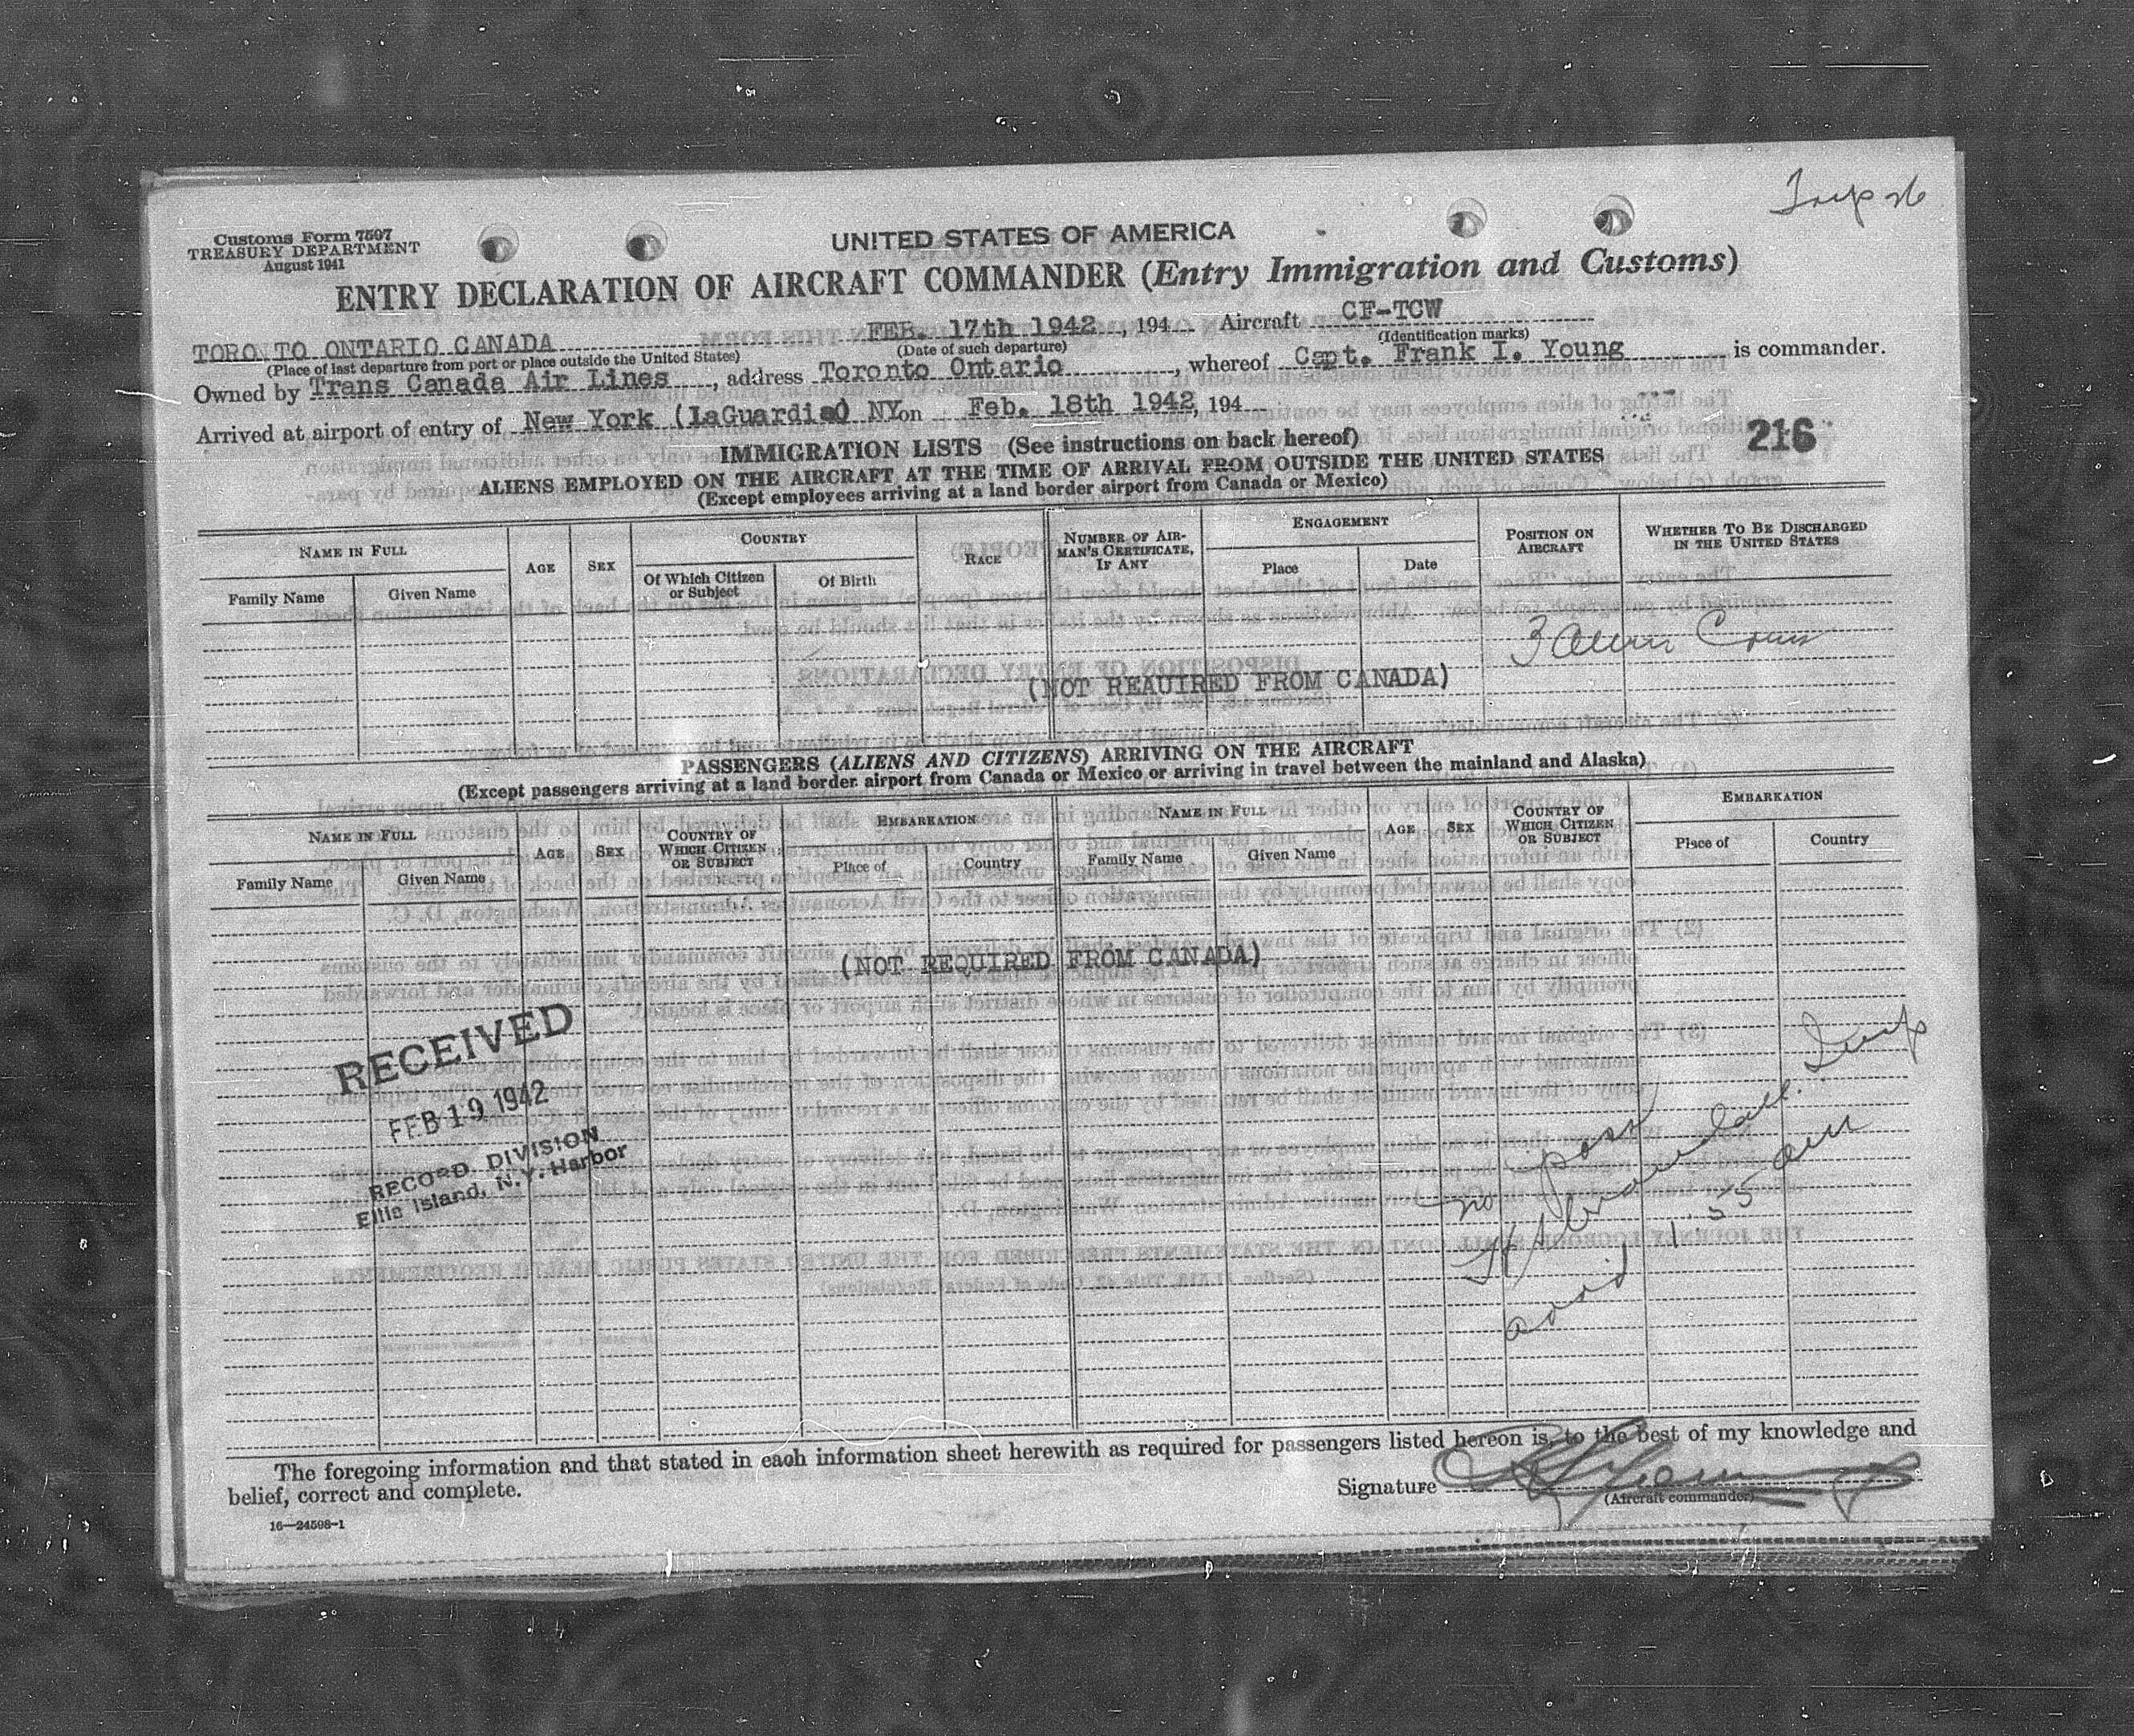 Customs Form 7507
TREASURY DEPARTMENT
August 1941
Trip 26
UNITED STATES OF AMERICA
ENTRY DECLARATION OF AIRCRAFT COMMANDER (Entry Immigration and Customs)
TORONTO ONTARIO CANADA FEB. 17th 1942, 194 Aircraft CF-TCW
(Place of last departure from port or place outside the United States) (Date of such departure) (Identification marks)
Owned by Trans Canada Air Lines, address Toronto Ontario, whereof Capt. Frank I. Young is commander.
Arrived at airport of entry of New York (LaGuardia) NY on Feb. 18th 1942, 194
216
IMMIGRATION LISTS (See instructions on back hereof)
ALIENS EMPLOYED ON THE AIRCRAFT AT THE TIME OF ARRIVAL FROM OUTSIDE THE UNITED STATES
(Except employees arriving at a land border airport from Canada or Mexico)
NAME IN FULL AGE SEX COUNTRY RACE NUMBER OF AIRMAN'S CERTIFICATE, IF ANY ENGAGEMENT POSITION ON AIRCRAFT WHETHER TO BE DISCHARGED IN THE UNITED STATES
Family Name Given Name Of Which Citizen or Subject Of Birth Place Date
3 alien Crew
(NOT REAUIRED FROM CANADA)
PASSENGERS (ALIENS AND CITIZENS) ARRIVING ON THE AIRCRAFT
(Except passengers arriving at a land border airport from Canada or Mexico or arriving in travel between the mainland and Alaska)
NAME IN FULL AGE SEX COUNTRY OF WHICH CITIZEN OR SUBJECT EMBARKATION NAME IN FULL AGE SEX COUNTRY OF WHICH CITIZEN OR SUBJECT EMBARKATION
Family Name Given Name Place of Country Family Name Given Name Place of Country
(NOT REQUIRED FROM CANADA)
RECEIVED
FEB 19 1942
RECORD DIVISION
Ellis Island, N.Y. Harbor
no pass
Insp
arrid 1:55 am
The foregoing information and that stated in each information sheet herewith as required for passengers listed hereon is, to the best of my knowledge and
belief, correct and complete.
Signature
(Aircraft commander)
16—24598-1